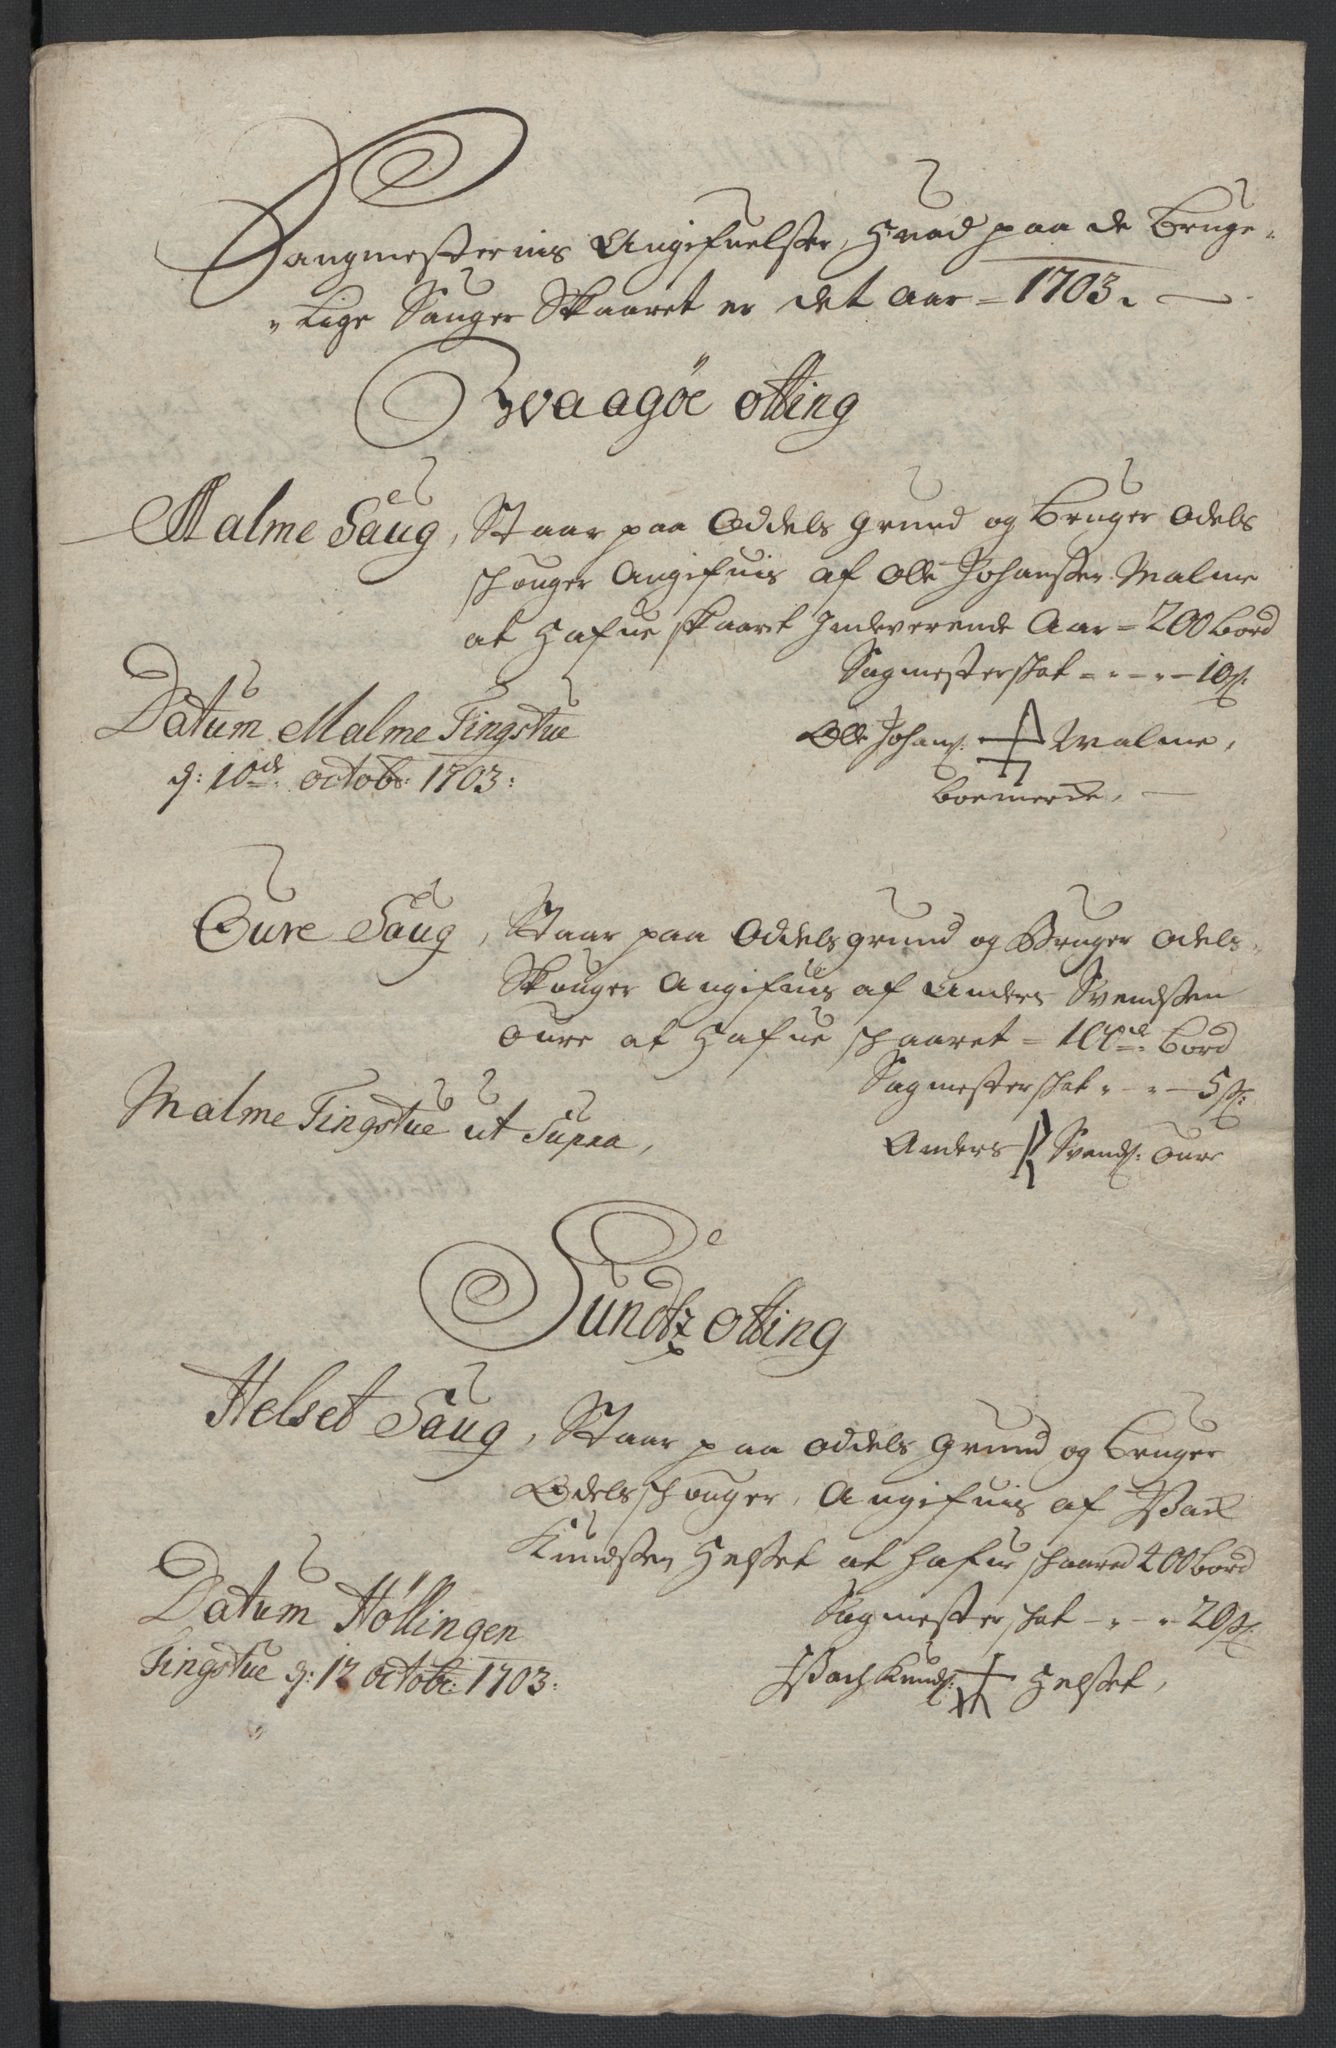 Saugmesternis Angifuelser, Hvad paa de Bruge-
Lige Sauger Skaaret er det Aar = 1703. —
Waagöe otting
Malme Saug, Staar paa Oddels grund og Bruger Odels
schouger Angifuis af Olle Johanssen Malme
at Hafue skaaret Indeverende Aar = 200 bord
Sagmesterschat - - - 10 s:
Datum Malme Tingstue
d: 10de octobr: 1703:
Olle Johans: Malme,
boemercke,
Oure Saug, Staar paa Oddels grund og Bruger Odels
Skouger Angifuis af Anders Svendssen
Oure at Hafue schaaret = 100de bord
Sagmesterschat - - - 5 s:
Malme Tingstue ut Supra,
Anders Svends: Oure
Sundtz otting
Helset Saug, Staar paa oddels grund og bruger
Odels schouger, Angifuis af
Knudssen Helset at hafue schaared 400 bord
Sagmester schat - - - 20 s:
Datum Höllingen
Tingstue d: 12 octobr: 1703:
Knuds: Helset,